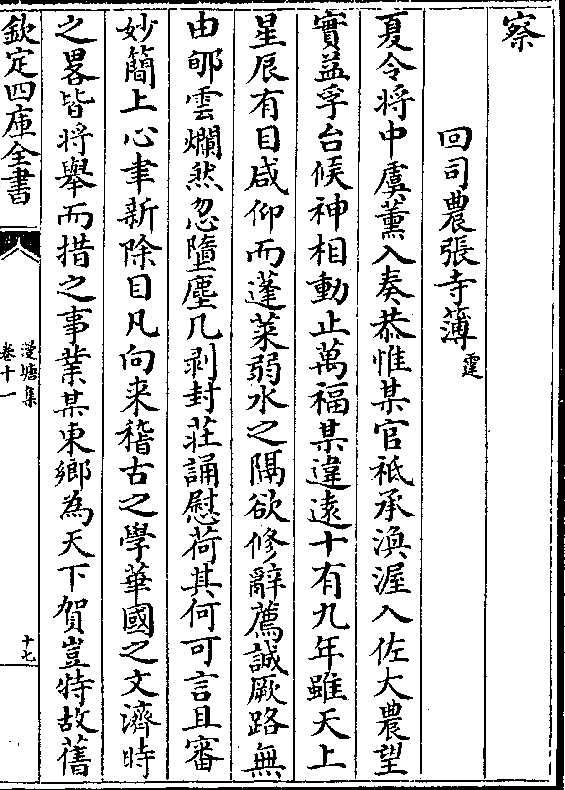 察
回司農張寺薄霆
夏令将中虞薰入奏恭惟某官祗承渙渥入佐大農望
實益孚台候神相動止萬福某違遠十有九年雖天上
星辰有目咸仰而蓬萊弱水之隅欲修辭薦誠厥路無
由郇雲爛然忽墮塵几剥封莊誦慰荷其何可言且審
妙簡上心聿新除目凡向来稽古之學華國之文濟時
之畧皆将舉而措之事業某東鄉為天下賀豈特故舊
欽定四庫全書
漫塘集
卷十一
十七